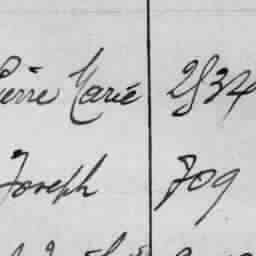 Pierre Marie 2534
Joseph 709